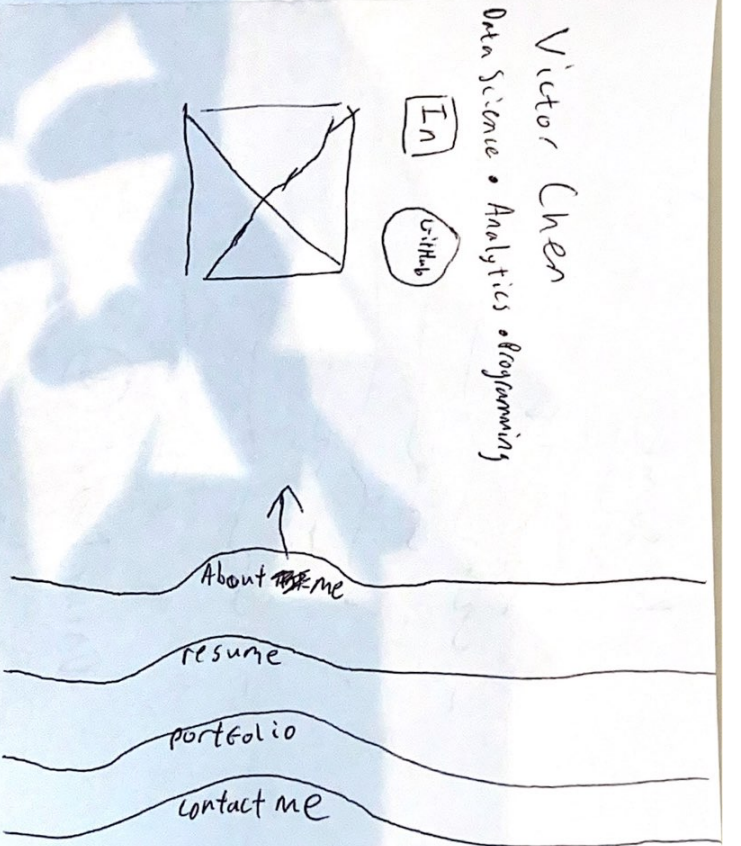 Victor Chen
Data Science • Analytics • Programming
In
GitHub
About me
resume
portfolio
contact me